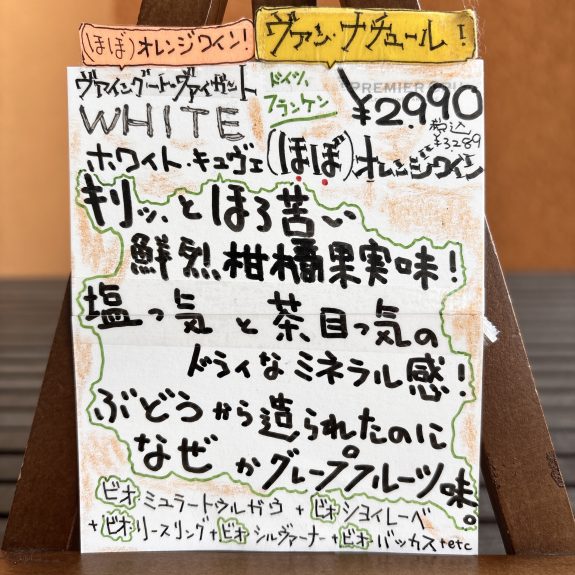 (ほぼ)オレンジワイン!
ヴァン・ナチュール!
ヴァイングート・ヴァイガント
ドイツ、
フランケン
PREMIER
¥2990
税込
¥3289
WHITE
ホワイト・キュヴェ(ほぼ)オレンジワイン
キリッ、とほろ苦い
鮮烈柑橘果実味!
塩っ気と茶目っ気の
ドライなミネラル感!
ぶどうから造られたのに
なぜかグレープフルーツ味。
ビオミュラートゥルガウ+ビオショイレーベ
+ビオリースリング+ビオシルヴァーナー+ビオバッカス+etc